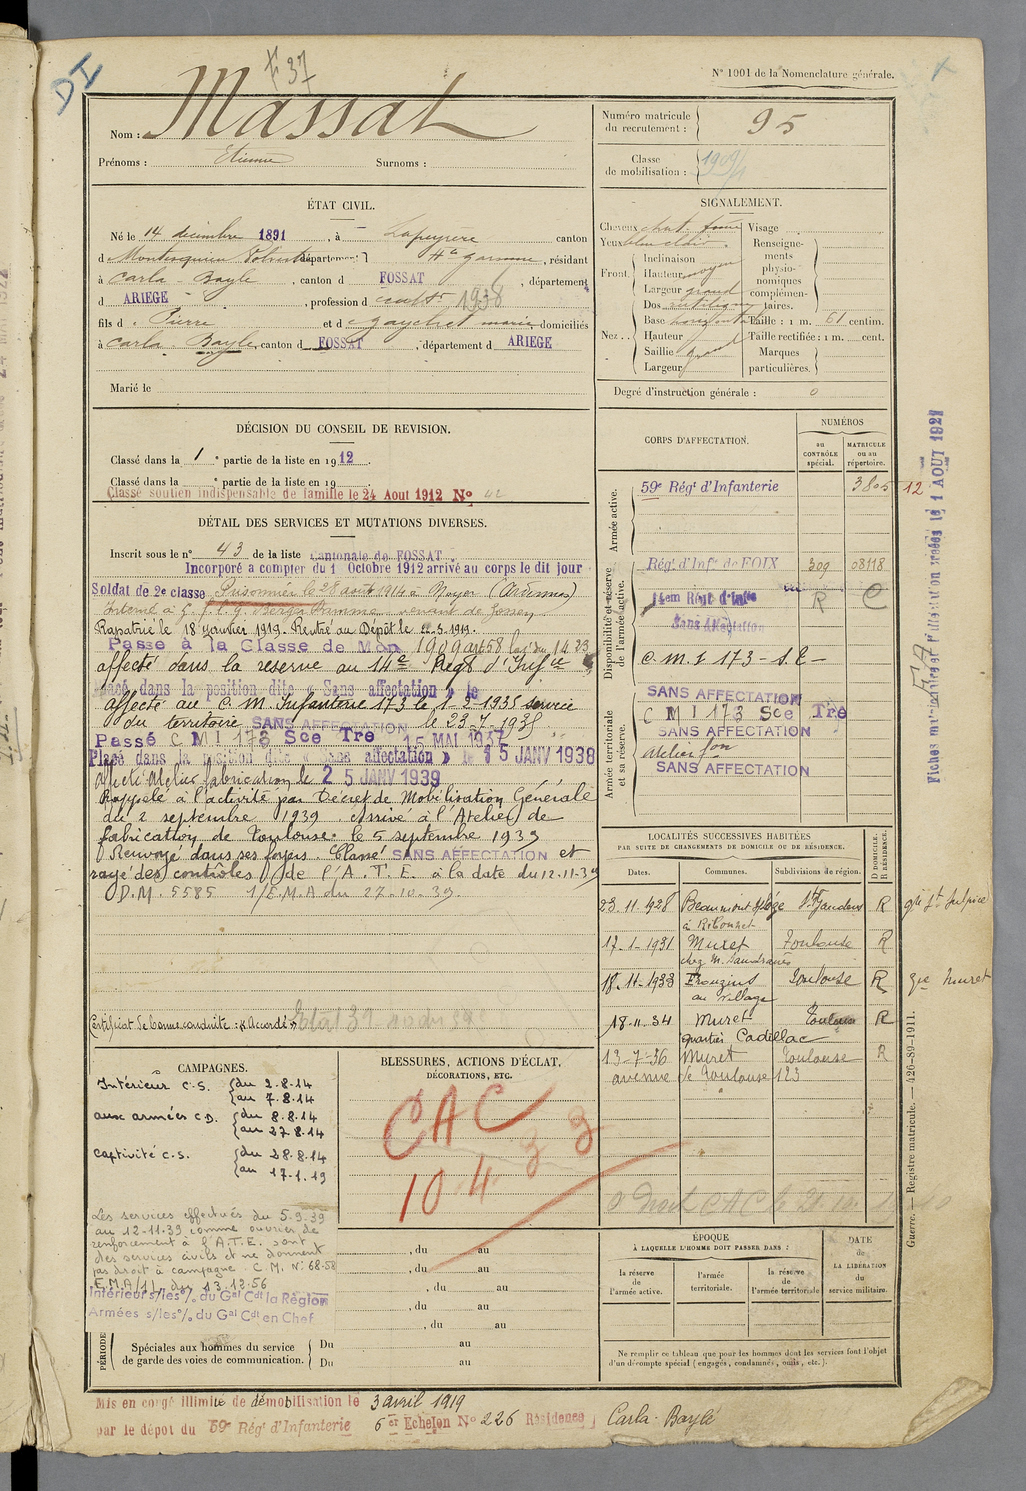 DI
F 37
N° 1001 de la Nomenclature générale.
Nom : Massat
Prénoms : Etienne Surnoms :
Numéro matricule du recrutement : 95
Classe de mobilisation : 1909
ÉTAT CIVIL.
Né le 14 décembre 1891, à Lapeyrere canton
d Montesquieu Volvestre, département Hte garonne, résidant
à Carla-Bayle, canton d FOSSAT, département
d ARIEGE, profession d cult 1938
fils d Pierre et d Gaychet marie, domiciliés
à Carla-Bayle, canton d FOSSAT, département d ARIEGE
Marié le
SIGNALEMENT.
Cheveux chat. foncé
Yeux bleu clair
Front. Inclinaison
Hauteur moyen
Largeur grand
Nez. Dos rectiligne
Base horizontale
Hauteur
Saillie grand
Largeur
Visage
Renseignements physionomiques complémentaires.
Taille : 1 m. 61 centim.
Taille rectifiée : 1 m. cent.
Marques particulières.
Degré d'instruction générale : 0
DÉCISION DU CONSEIL DE REVISION.
Classé dans la 1e partie de la liste en 1912.
Classé dans la e partie de la liste en 19
Classé soutien indispensable de famille le 24 Aout 1912 No 42
DÉTAIL DES SERVICES ET MUTATIONS DIVERSES.
Inscrit sous le n° 43 de la liste cantonale de FOSSAT
Incorporé a compter du 1 Octobre 1912 arrivé au corps le dit jour
Soldat de 2e classe Prisonnier le 28 août 1914 à Noyer (Ardennes)
Interné à venant de
Rapatrié le 18 janvier 1919. Rentré au Dépôt le 22.3.1919.
Passé à la Classe de Mon 1909 art 58 loi du 1.4.23
affecté dans la reserve au 14e Regt d'Infie
Placé dans la position dite « Sans affectation » le
affecté au C. M. Infanterie 173 le 1-2-1935 service
du territoire SANS AFFECTATION le 23.7.1935
Passé C M I 173 Sce Tre 15 MAI 1937
Placé dans la position dite « Sans affectation » le 15 JANV 1938
Affecté Atelier fabrication le 25 JANV 1939
Rappelé à l'activité par Décret de Mobilisation Générale
du 2 septembre 1939. Arrivé à l'Atelier de
fabrication de Toulouse le 5 septembre 1939
Renvoyé dans ses foyers. Classé SANS AFFECTATION et
rayé des contrôles de l'A.T.E. à la date du 12-11-39
D.M. 5585 1/E.M.A du 27.10.39.
Certificat de bonne conduite : « Accordé »
CORPS D'AFFECTATION.
NUMÉROS
au CONTRÔLE spécial.
MATRICULE ou au répertoire.
Armée active.
59e Régt d'Infanterie 3805 12
Disponibilité et réserve de l'armée active.
Régt d'Infie de FOIX 309 08118
14em Régt d'Infie R C
Sans Affectation
C. M. I 173 - S. T. -
Armée territoriale et sa réserve.
SANS AFFECTATION
C M I 173 Sce Tre
SANS AFFECTATION
Atelier fon
SANS AFFECTATION
LOCALITÉS SUCCESSIVES HABITÉES
PAR SUITE DE CHANGEMENTS DE DOMICILE OU DE RÉSIDENCE.
D DOMICILE. R RÉSIDENCE.
Dates. Communes. Subdivisions de région.
23.11.1928 Beaumont s/Lèze St Gaudens R gie St Sulpice
à Ribonnet
17-1-1931 Muret Toulouse R
chez M.
18-11-1933 Frouzins Toulouse R gie Muret
au village
18-11-34 Muret Toulouse R
quartier Cadillac
13-7-36 Muret Toulouse R
avenue de Toulouse 123
CAMPAGNES.
Intérieur C.S. du 2-8-14
au 7-8-14
aux armées C.D. du 8-8-14
au 27-8-14
Captivité C.S. du 28-8-14
au 17-1-19
Les services effectués du 5-9-39
au 12-11-39 comme ouvrier de
renforcement à l'A.T.E. sont
des services civils et ne donnent
pas droit à campagne C.M. N° 68-58
E.M.A/1L du 13.12.56
Intérieur s/les % du Gal Cdt la Région
Armées s/les % du Gal Cdt en Chef
BLESSURES, ACTIONS D'ÉCLAT,
DÉCORATIONS, ETC.
CAC
10.4.33
, du au
, du au
, du au
, du au
, du au
PÉRIODE
Spéciales aux hommes du service
de garde des voies de communication.
Du au
Du au
ÉPOQUE
À LAQUELLE L'HOMME DOIT PASSER DANS :
la réserve de l'armée active.
l'armée territoriale.
la réserve de l'armée territoriale
DATE de LA LIBÉRATION du service militaire.
Ne remplir ce tableau que pour les hommes dont les services font l'objet
d'un décompte spécial (engagés, condamnés, omis, etc.).
Mis en congé illimité de démobilisation le 3 avril 1919
par le dépot du 59e Régt d'Infanterie 6er Echelon No 226 Résidence Carla-Bayle
Guerre. — Registre matricule. — 426-89-1911.